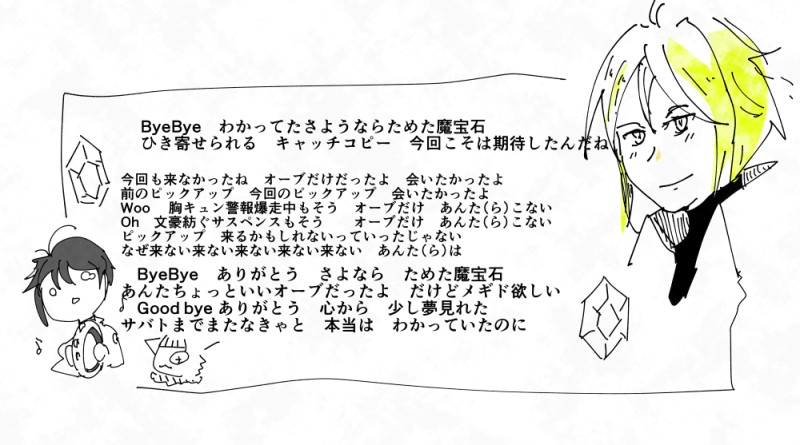 ByeBye　わかってたさようならためた魔宝石
ひき寄せられる　キャッチコピー　今回こそは期待したんだね
今回も来なかったね　オーブだけだったよ　会いたかったよ
前のピックアップ　今回のピックアップ　会いたかったよ
Woo　胸キュン警報爆走中もそう　オーブだけ　あんた(ら)こない
Oh　文豪紡ぐサスペンスもそう　　オーブだけ　あんた(ら)こない
ピックアップ　来るかもしれないっていったじゃない
なぜ来ない来ない来ない来ない来ない　あんた(ら)は
ByeBye　ありがとう　さよなら　ためた魔宝石
あんたちょっといいオーブだったよ　だけどメギド欲しい
Good bye ありがとう　心から　少し夢見れた
サバトまでまたなきゃと　本当は　わかっていたのに